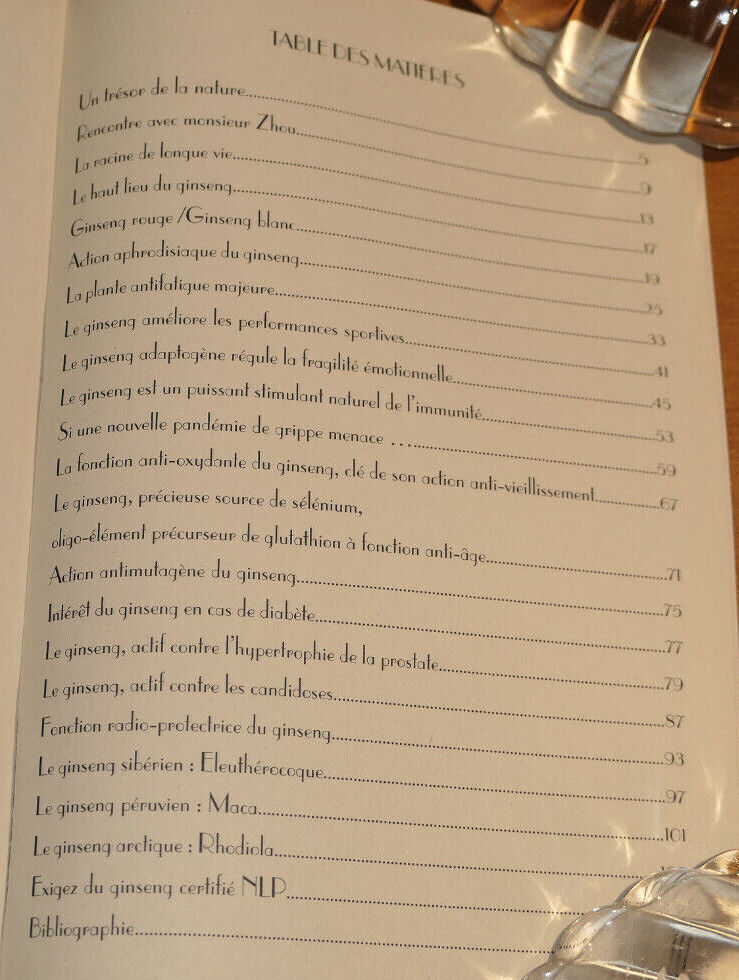 TABLE DES MATIÈRES
Un trésor de la nature..........5
Rencontre avec monsieur Zhou..........9
La racine de longue vie..........13
Le haut lieu du ginseng..........17
Ginseng rouge /Ginseng blanc..........19
Action aphrodisiaque du ginseng..........25
La plante antifatigue majeure..........33
Le ginseng améliore les performances sportives..........41
Le ginseng adaptogène régule la fragilité émotionnelle..........45
Le ginseng est un puissant stimulant naturel de l'immunité..........53
Si une nouvelle pandémie de grippe menace ..........59
La fonction anti-oxydante du ginseng, clé de son action anti-vieillissement..........67
Le ginseng, précieuse source de sélénium,
oligo-élément précurseur de glutathion à fonction anti-âge..........71
Action antimutagène du ginseng..........75
Intérêt du ginseng en cas de diabète..........77
Le ginseng, actif contre l'hypertrophie de la prostate..........79
Le ginseng, actif contre les candidoses..........87
Fonction radio-protectrice du ginseng..........93
Le ginseng sibérien : Eleuthérocoque..........97
Le ginseng péruvien : Maca..........101
Le ginseng arctique : Rhodiola..........
Exigez du ginseng certifié NLP..........
Bibliographie..........